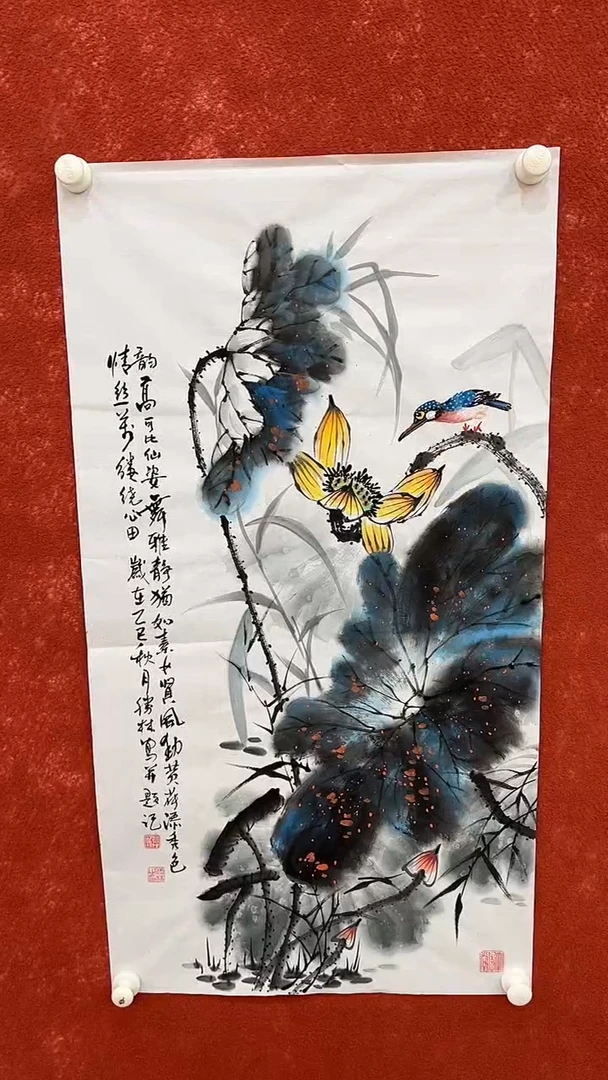 韵高可比仙姿舞雅静犹如素女贤风动黄荷添秀色
情丝万缕绕心田 岁在乙巳秋月胜林写并题记